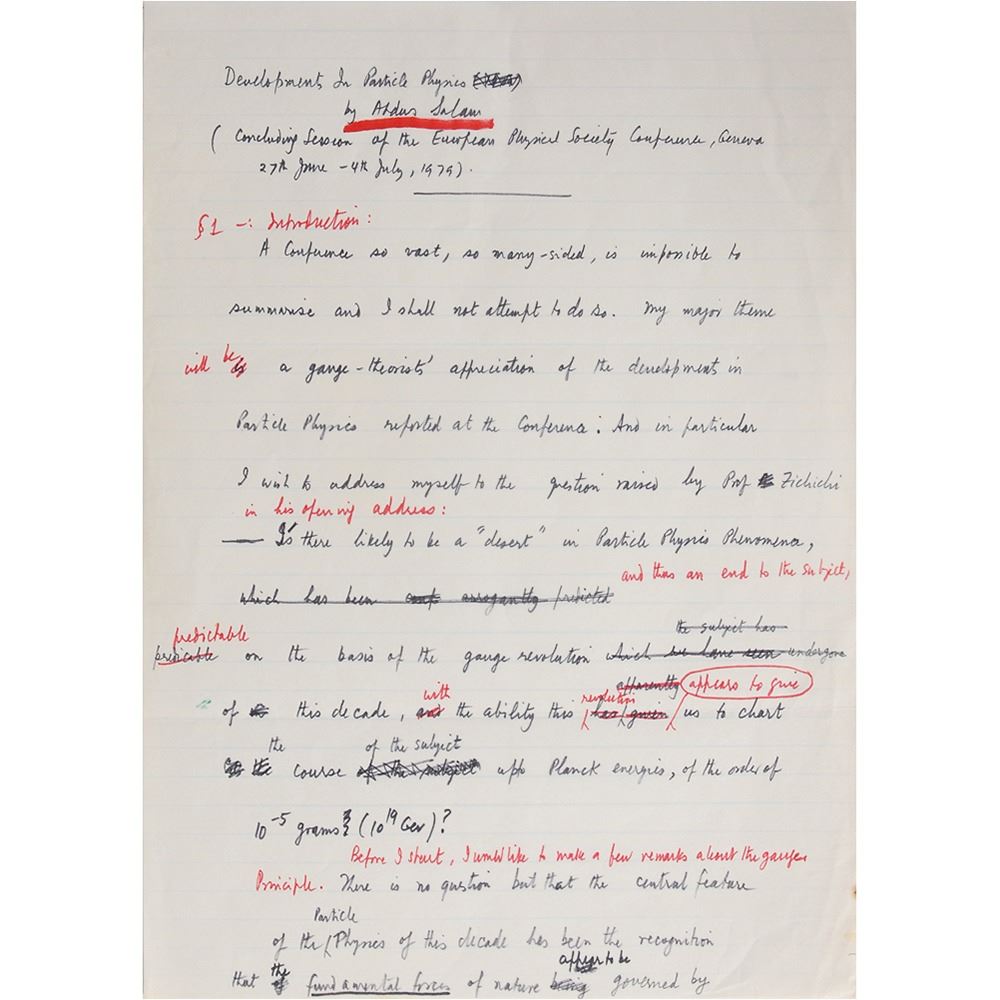 Developments In Particle Physics
by Abdus Salam
( Concluding Session of the European Physical Society Conference, Geneva
27th June - 4th July, 1979).
§1 -: Introduction:
A Conference so vast, so many-sided, is impossible to
summarise and I shall not attempt to do so. My major theme
will be a gauge-theorists' appreciation of the developments in
Particle Physics reported at the Conference. And in particular
I wish to address myself to the question raised by Prof Zichichi
in his opening address:
— Is there likely to be a "desert" in Particle Physics Phenomena,
and thus an end to the subject,
which has been arrogantly predicted
the subject has
predictable
predicable on the basis of the gauge revolution which we have seen undergone
apparently appears to give
with revolution
of this decade, and the ability this has given us to chart
the of the subject
course of the subject upto Planck energies, of the order of
10⁻⁵ grams (10¹⁹ Gev)?
Before I start, I would like to make a few remarks about the gauge
Principle. There is no question but that the central feature
Particle
of the Physics of this decade has been the recognition
the appear to be
that of fundamental forces of nature being governed by